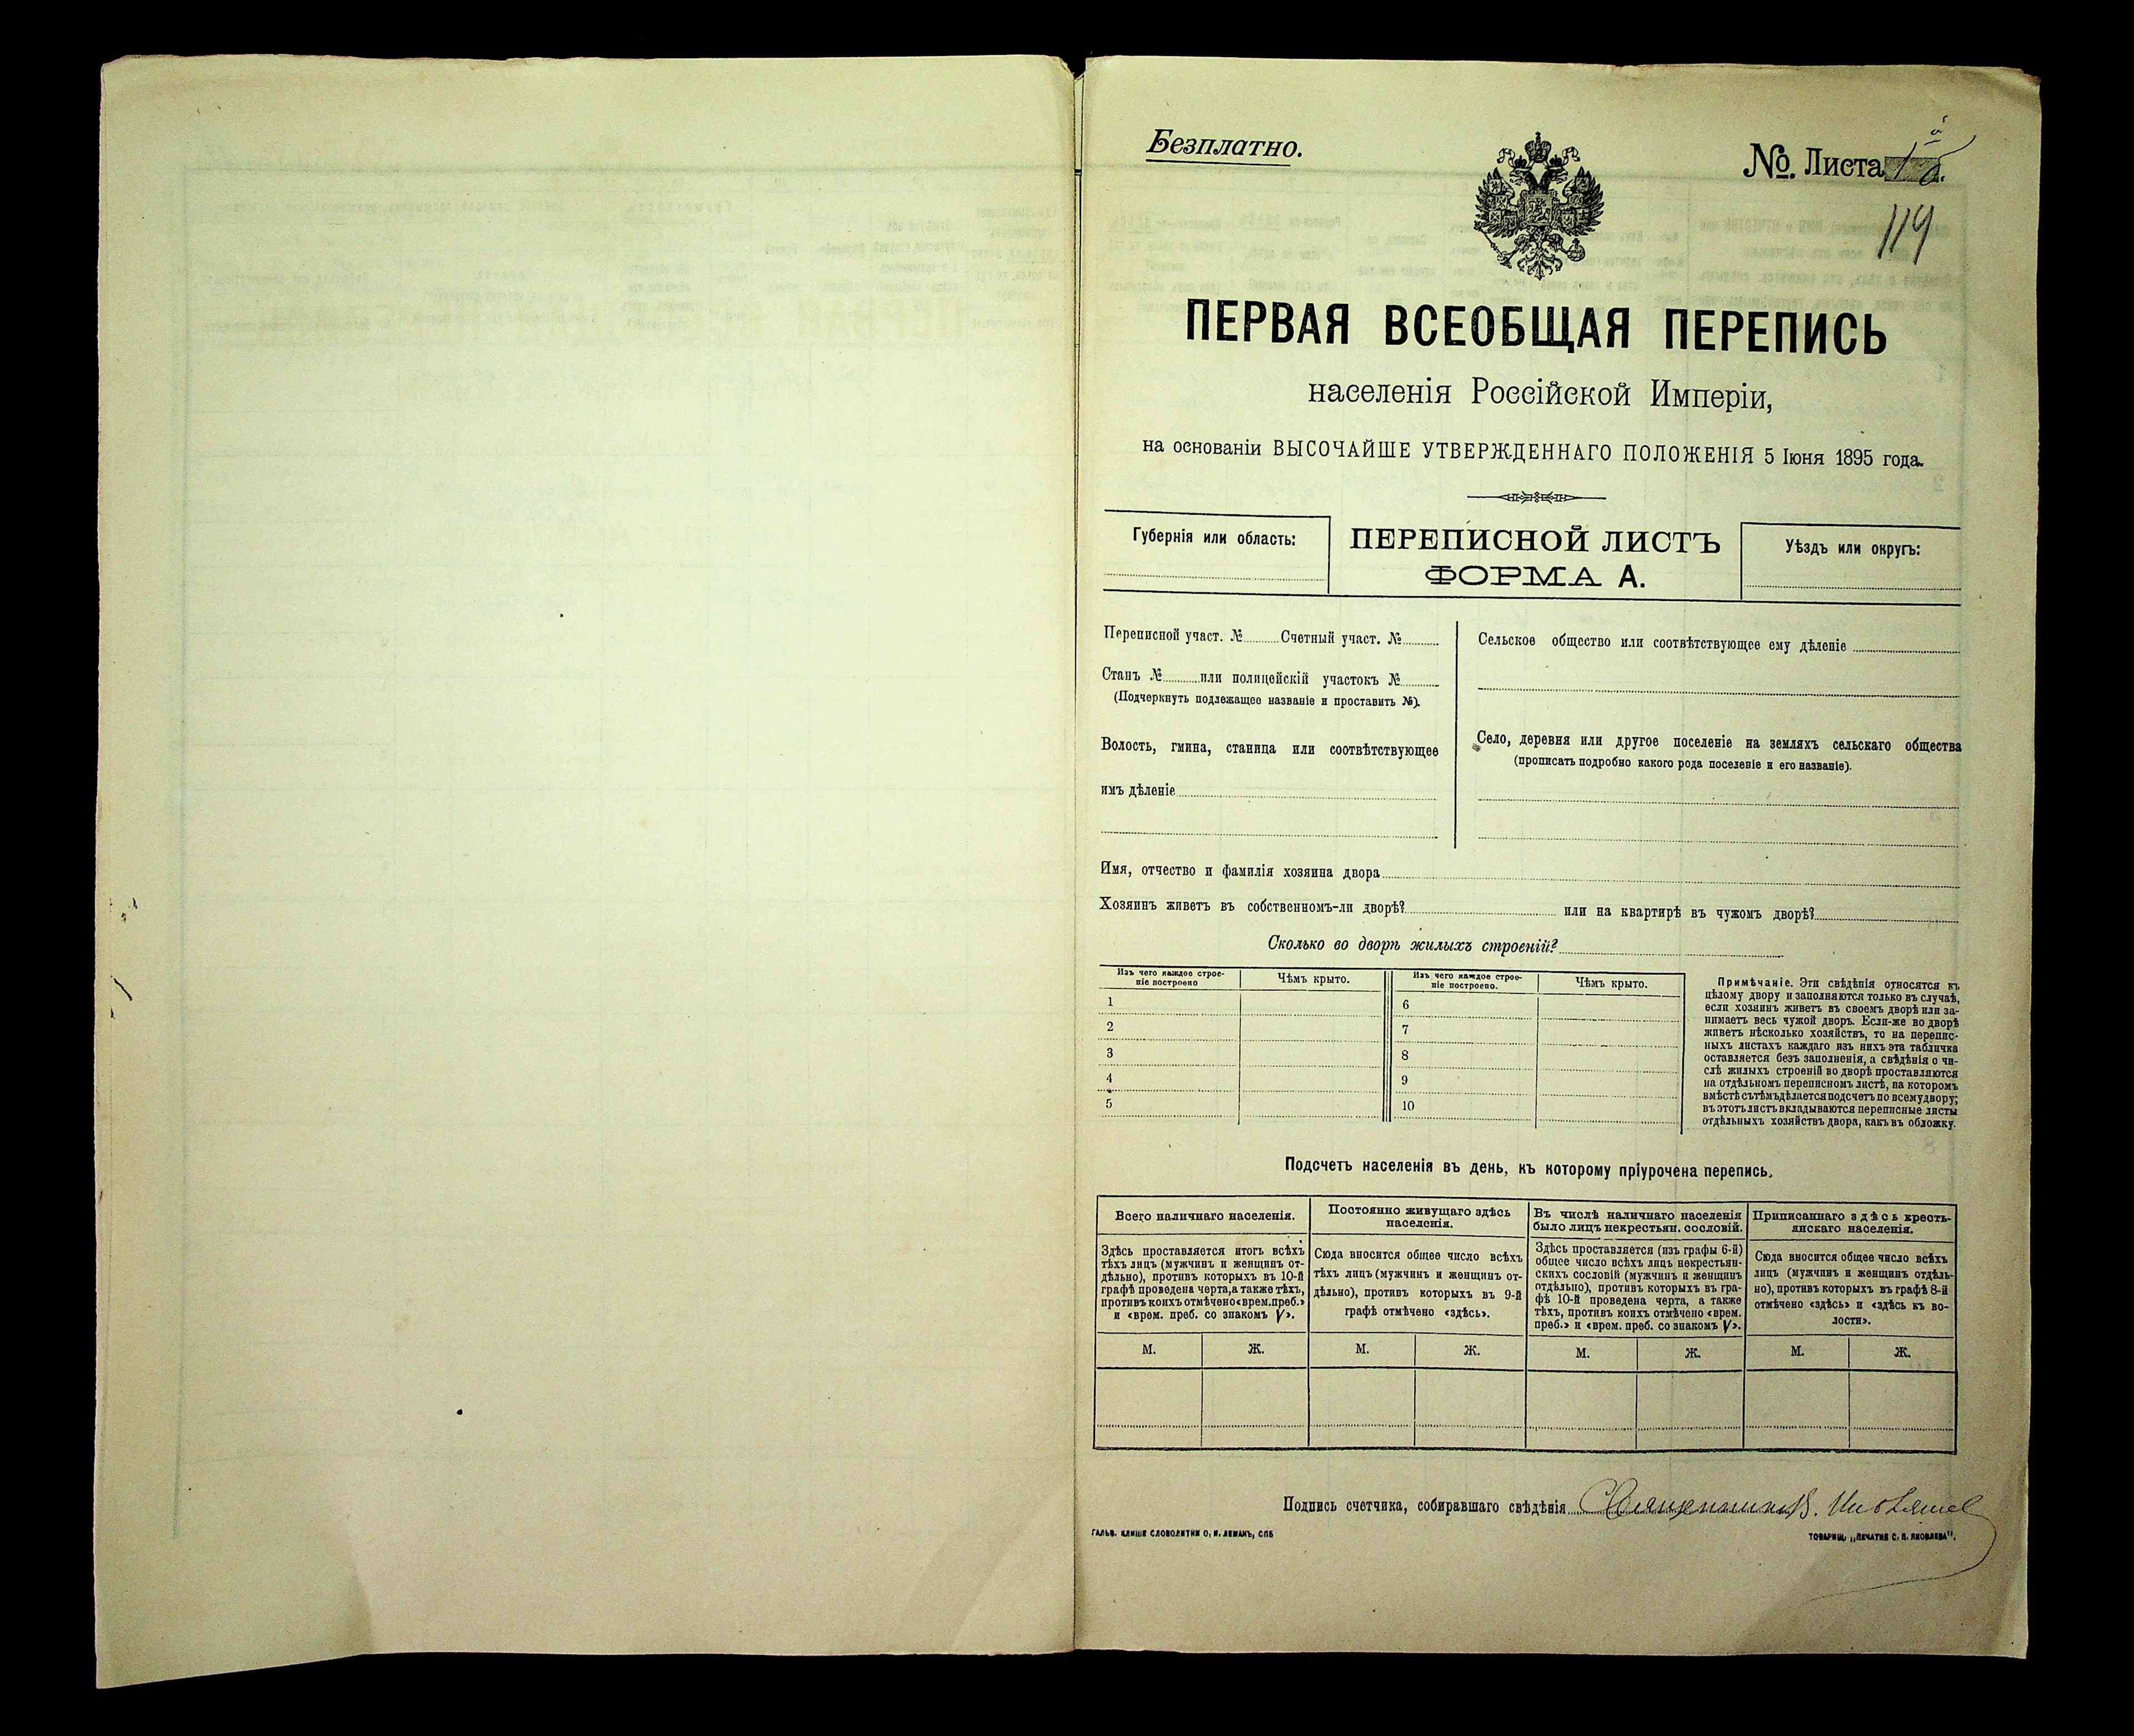 Безплатно.
№. Листа
119
ПЕРВАЯ ВСЕОБЩАЯ ПЕРЕПИСЬ
населенія Россійской Имперіи,
на основаніи ВЫСОЧАЙШЕ УТВЕРЖДЕННАГО ПОЛОЖЕНІЯ 5 Іюня 1895 года.
Губернія или область:
ПЕРЕПИСНОЙ ЛИСТЪ
ФОРМА А.
Уѣздъ или округъ:
Переписной участ. № Счетный участ. №
Станъ № или полицейскій участокъ №
(Подчеркнуть подлежащее названіе и проставить №).
Волость, гмина, станица или соотвѣтствующее
имъ дѣленіе
Сельское общество или соотвѣтствующее ему дѣленіе
Село, деревня или другое поселеніе на земляхъ сельскаго общества
(прописать подробно какого рода поселеніе и его названіе).
Имя, отчество и фамилія хозяина двора
Хозяинъ живетъ въ собственномъ-ли дворѣ? или на квартирѣ въ чужомъ дворѣ?
Сколько во дворѣ жилыхъ строеній?
Изъ чего каждое строе-
ніе построено
Чѣмъ крыто.
Изъ чего каждое строе-
ніе построено.
Чѣмъ крыто.
1
2
3
4
5
6
7
8
9
10
Примѣчаніе. Эти свѣдѣнія относятся къ
цѣлому двору и заполняются только въ случаѣ,
если хозяинъ живетъ въ своемъ дворѣ или за-
нимаетъ весь чужой дворъ. Если-же во дворѣ
живетъ нѣсколько хозяйствъ, то на перепис-
ныхъ листахъ каждаго изъ нихъ эта табличка
оставляется безъ заполненія, а свѣдѣнія о чи-
слѣ жилыхъ строеній во дворѣ проставляются
на отдѣльномъ переписномъ листѣ, на которомъ
вмѣстѣ съ тѣмъ дѣлается подсчетъ по всему двору;
въ этотъ листъ вкладываются переписные листы
отдѣльныхъ хозяйствъ двора, какъ въ обложку.
Подсчетъ населенія въ день, къ которому пріурочена перепись.
Всего наличнаго населенія.
Здѣсь проставляется итогъ всѣхъ
тѣхъ лицъ (мужчинъ и женщинъ от-
дѣльно), противъ которыхъ въ 10-й
графѣ проведена черта, а также тѣхъ,
противъ коихъ отмѣчено «врем. преб.»
и «врем. преб. со знакомъ V».
Постоянно живущаго здѣсь
населенія.
Сюда вносится общее число всѣхъ
тѣхъ лицъ (мужчинъ и женщинъ от-
дѣльно), противъ которыхъ въ 9-й
графѣ отмѣчено «здѣсь».
Въ числѣ наличнаго населенія
было лицъ некрестьян. сословій.
Здѣсь проставляется (изъ графы 6-й)
общее число всѣхъ лицъ некрестьян-
скихъ сословій (мужчинъ и женщинъ
отдѣльно), противъ которыхъ въ гра-
фѣ 10-й проведена черта, а также
тѣхъ, противъ коихъ отмѣчено «врем.
преб.» и «врем. преб. со знакомъ V».
Приписаннаго здѣсь кресть-
янскаго населенія.
Сюда вносится общее число всѣхъ
лицъ (мужчинъ и женщинъ отдѣль-
но), противъ которыхъ въ графѣ 8-й
отмѣчено «здѣсь» и «здѣсь къ во-
лости».
М. Ж. М. Ж. М. Ж. М. Ж.
Подпись счетчика, собиравшаго свѣдѣнія Священникъ В.
ГАЛЬВ. КЛИШЕ СЛОВОЛИТНИ О. И. ЛЕМАНЪ, СПБ
ТОВАРИЩ. „ПЕЧАТНЯ С. П. ЯКОВЛЕВА".